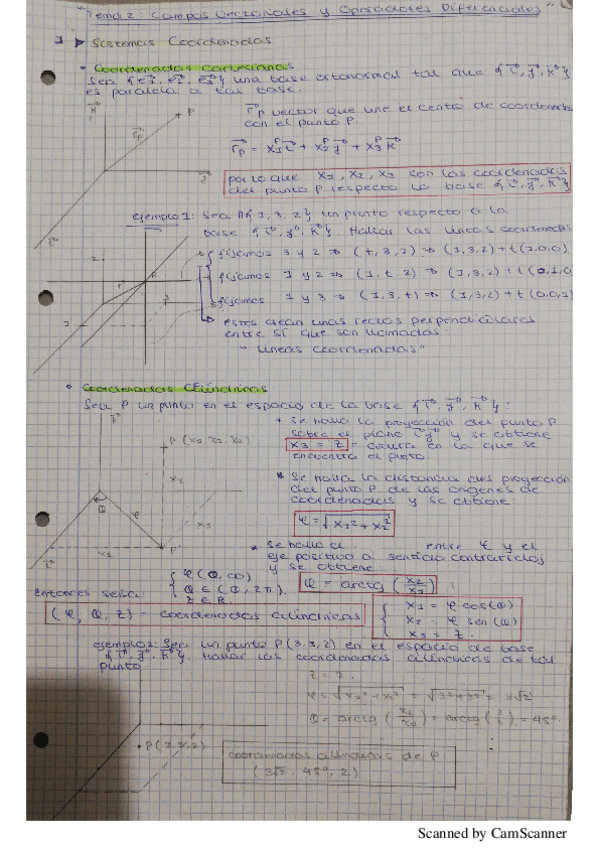 "Tema 2: Campos Vectoriales y Operadores Diferenciales"
1 ➤ Sistemas Coordenadas
• Coordenadas Cartesianas
Sea {e1, e2, e3} una base ortonormal tal que {i, j, k}
es paralela a tal base.
rp vector que une el centro de coordenadas
con el punto P
rp = x1 i + x2 j + x3 k
por lo que x1, x2, x3 son las coordenadas
del punto P respecto la base {i, j, k}
ejemplo 1: Sea A{1, 3, 2} un punto respecto a la
base {i, j, k}. Hallar las líneas coordenadas
fijamos 3 y 2 ⇒ (t, 3, 2) ⇒ (1,3,2) + t(1,0,0)
fijamos 1 y 2 ⇒ (1, t, 2) ⇒ (1,3,2) + t(0,1,0)
fijamos 1 y 3 ⇒ (1,3,t) ⇒ (1,3,2) + t(0,0,1)
estas crean unas rectas perpendiculares
entre sí que son llamadas:
"Líneas coordenadas"
• Coordenadas Cilíndricas
Sea P un punto en el espacio de la base {i, j, k}:
• Se halla la proyección del punto P
sobre el plano ij y se obtiene
x3 = z = altura en la que se
encuentra el punto.
P (x1, x2, x3)
x2
x3
P'
* Se halla la distancia
del punto P de los orígenes de
coordenadas y se obtiene:
φ = √x1² + x2²
* Se halla el entre φ y el
eje positivo a sentido contrario
y se obtiene:
θ = arctg (x2/x1)
Entonces
φ (0, ∞)
θ ∈ (0, 2π).
z ∈ R.
(φ, θ, z) = coordenadas cilíndricas
x1 = φ cos(θ)
x2 = φ sen(θ)
x3 = z.
ejemplo 2: Sea un punto P(3,3,2) en el espacio de base
{i, j, k}. Hallar las coordenadas cilíndricas de tal
punto.
z = 2.
φ = √x1² + x2² = √3²+3² = 3√2
θ = arctg (x2/x1) = arctg (3/3) = 45°.
P(3,3,2)
coordenadas cilíndricas de P:
(3√2, 45°, 2)
Scanned by CamScanner